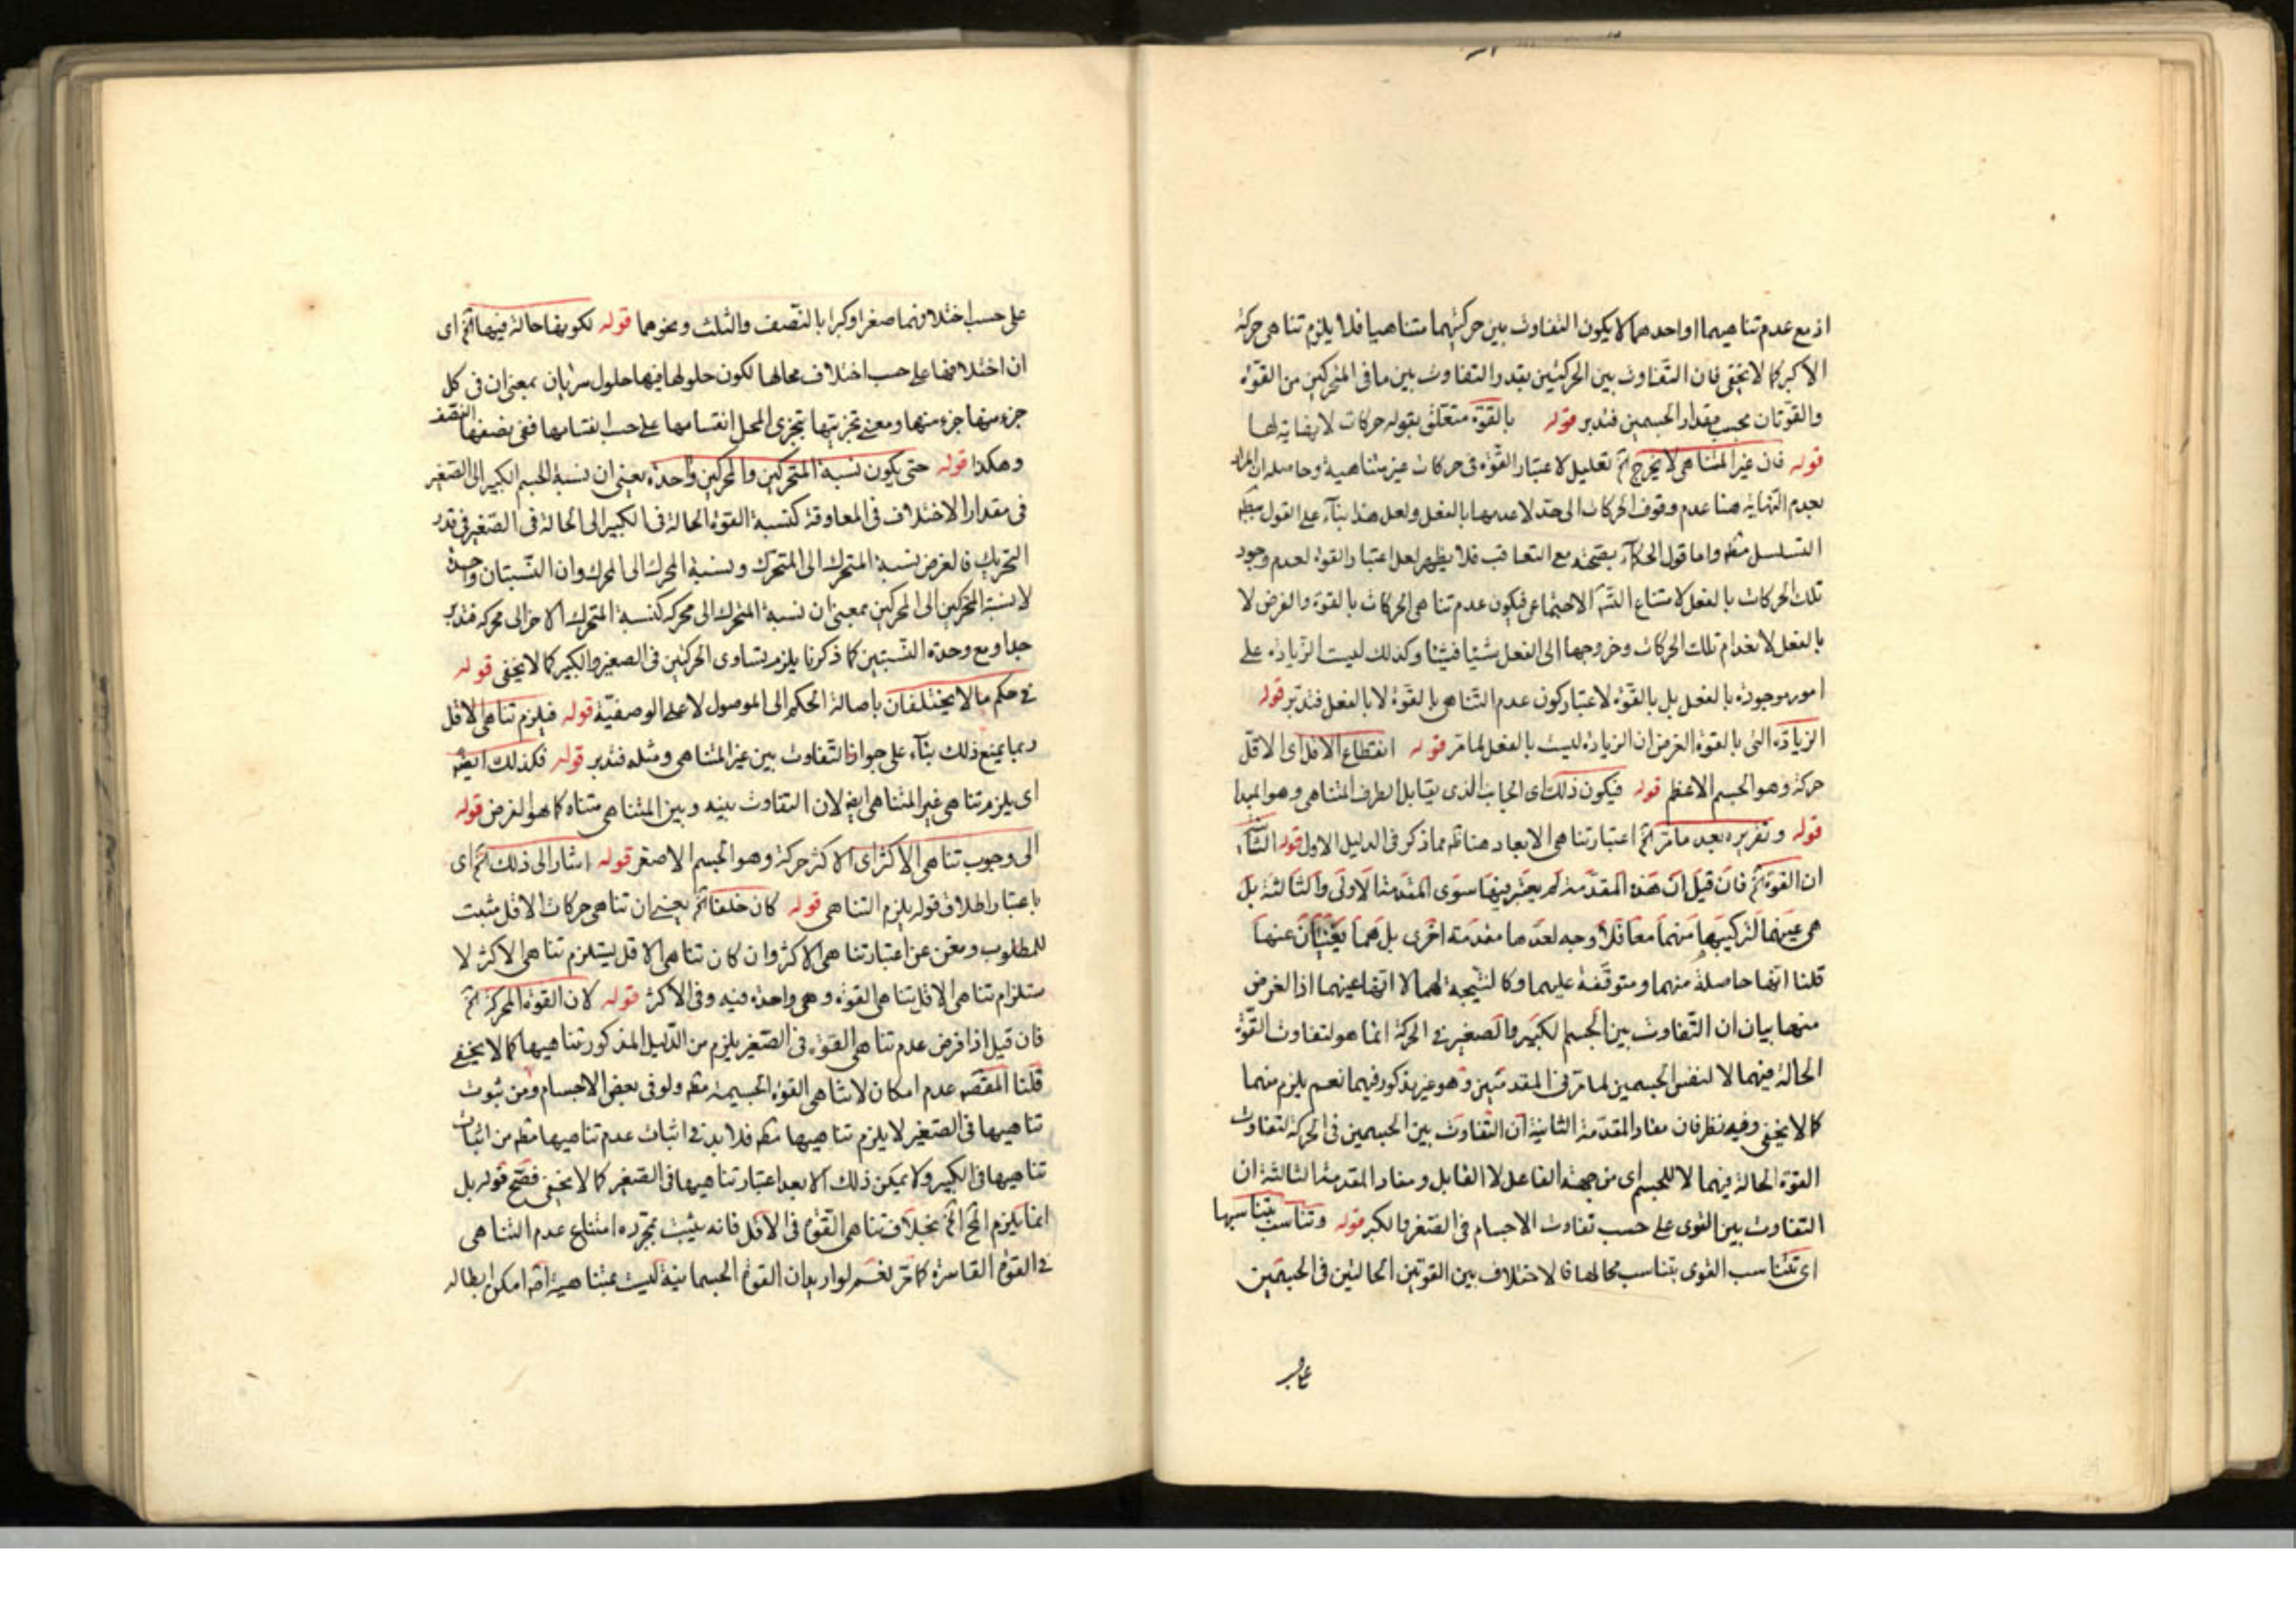 اذ مع عدم تناهيهما او احدهما لا يكون التفاوت بين حركتيهما متناهيا فلا يلزم تناهى حركة
الاكبر كما لا يخفى فان التفاوت بين الحركتين بقدر التفاوت بين ما فى المتحركين من القوة
والقوتان بحسب مقدار الجسمين فتدبر قوله بالقوة متعلق بقوله حركات لا نهاية لها
قوله فان غير المتناهى لا يخرج اﻟﺦ تعليل لاعتبار القوة فى حركات غير متناهية وحاصله ان المراد
بعدم النهاية هنا عدم وقوف الحركات الى حد لا عدمها بالفعل ولعل هذا بناء على القول
التسلسل مطه واما قول الحكماء بصحته مع التعاقب فلا يظهر لعل اعتبار القوة لعدم وجود
تلك الحركات بالفعل لامتناع الاجتماعى فيكون عدم تناهى الحركات بالقوة والفرض لا
بالفعل لانعدام تلك الحركات وخروجها الى الفعل شيئا فشيئا وكذلك ليست الزيادة على
امور موجودة بالفعل بل بالقوة لاعتبار كون عدم التناهى بالقوة لا بالفعل فتدبر قوله
الزيادة التى بالقوة الغرض ان الزيادة ليست بالفعل لما مر قوله انقطاع الاقل اى الاقل
حركة وهو الجسم الاعظم قوله فيكون ذلك اى الجانب الذى يقابل الطرف المتناهى وهو المبدا
قوله وتقريره بعد ما مر اﻟﺦ اعتبار تناهى الابعاد هنا مما ذكر فى الدليل الاول قوله
ان القوة اﻟﺦ فان قيل ان هذه المقدمة لم يعتبر فيها سوى المقدمة الاولى والثالثة بل
هى عينهما لتركيبها منهما معا فلا وجه لعدها مقدمة اخرى بل هما يغنيان عنها
قلنا انها حاصلة منهما ومتوقفة عليهما وكالنتيجة لهما لا انها عينهما اذ الغرض
منها بيان ان التفاوت بين الجسم الكبير والصغير فى الحركة انما هو لتفاوت القوة
الحالة فيهما لا لنفس الجسمين لما مر فى المقدمتين وهو غير مذكور فيهما نعم يلزم منهما
كما لا يخفى وفيه نظر فان مفاد المقدمة الثانية ان التفاوت بين الجسمين فى الحركة لتفاوت
القوة الحالة فيهما لا للجسم اى من جهة الفاعل لا القابل ومفاد المقدمة الثالثة ان
التفاوت بين القوى على حسب تفاوت الاجسام فى الصغر والكبر قوله وتناسب بتناسبها
اى تتناسب القوى بتناسب محالها فالاختلاف بين القوتين الحالتين فى الجسمين
على حسب اختلافهما صغرا وكبرا بالنصف والثلث ونحوهما قوله لكونها حالة فيها اﻟﺦ اى
ان اختلافها على حسب اختلاف محالها لكون حلولها فيها حلول سريان بمعنى ان فى كل
جزء منها جزء منها ومعنى تجزيتها بتجزى المحل انقسامها على حسب انقسامها ففى نصفها النصف
وهكذا قوله حتى يكون نسبة المتحركين والمحركين واحدة يعنى ان نسبة الجسم الكبير الى الصغير
فى مقدار الاختلاف فى المعاوقة كنسبة القوة الحالة فى الكبير الى الحالة فى الصغير فى قدر
التحريك فالغرض نسبة المتحرك الى المتحرك ونسبة المحرك الى المحرك وان النسبتان واحدة
لا نسبة المتحركين الى المحركين بمعنى ان نسبة المتحرك الى محركه كنسبة المتحرك الاخر الى محركه فتدبر
جدا ومع وحدة النسبتين كما ذكرنا يلزم تساوى الحركتين فى الصغير والكبير كما لا يخفى قوله
فى حكم ما لا يختلفان باصالة الحكم الى الموصول لا على الوصفية قوله فيلزم تناهى الاقل
ربما يمنع ذلك بناء على جواز التفاوت بين غير المتناهى ومثله فتدبر قوله فكذلك ايضه
اى يلزم تناهى غير المتناهى ايضا لان التفاوت بينه وبين المتناهى متناه كما هو الغرض قوله
الى وجوب تناهى الاكثر اى الاكثر حركة وهو الجسم الاصغر قوله اشار الى ذلك اﻟﺦ اى
باعتبار اطلاق قوله يلزم التناهى قوله كان خلفا اﻟﺦ يعنى ان تناهى حركات الاقل مثبت
للمطلوب ومغن عن اعتبار تناهى الاكثر وان كان تناهى الاقل يستلزم تناهى الاكثر لا
ستلزام تناهى الاقل تناهى القوة وهى واحدة فيه وفى الاكثر قوله لان القوة المحركة اﻟﺦ
فان قيل اذا فرض عدم تناهى القوة فى الصغير يلزم من الدليل المذكور تناهيها كما لا يخفى
قلنا المقصه عدم امكان لا تناهى القوة الجسيمة مطه ولو فى بعض الاجسام ومن ثبوت
تناهيها فى الصغير لا يلزم تناهيها مطه فلا بد فى اثبات عدم تناهيها مطه من اثبات
تناهيها فى الكبير ولا يمكن ذلك الا بعد اعتبار تناهيها فى الصغير كما لا يخفى فصح قوله بل
انما يلزم المح اﻟﺦ بخلاف تناهى القوة فى الاقل فانه يثبت بمجرده امتناع عدم التناهى
فى القوة القاسرة كما مر نعم لو اريد ان القوة الجسمانية ليست بمتناهية امكن ابطاله